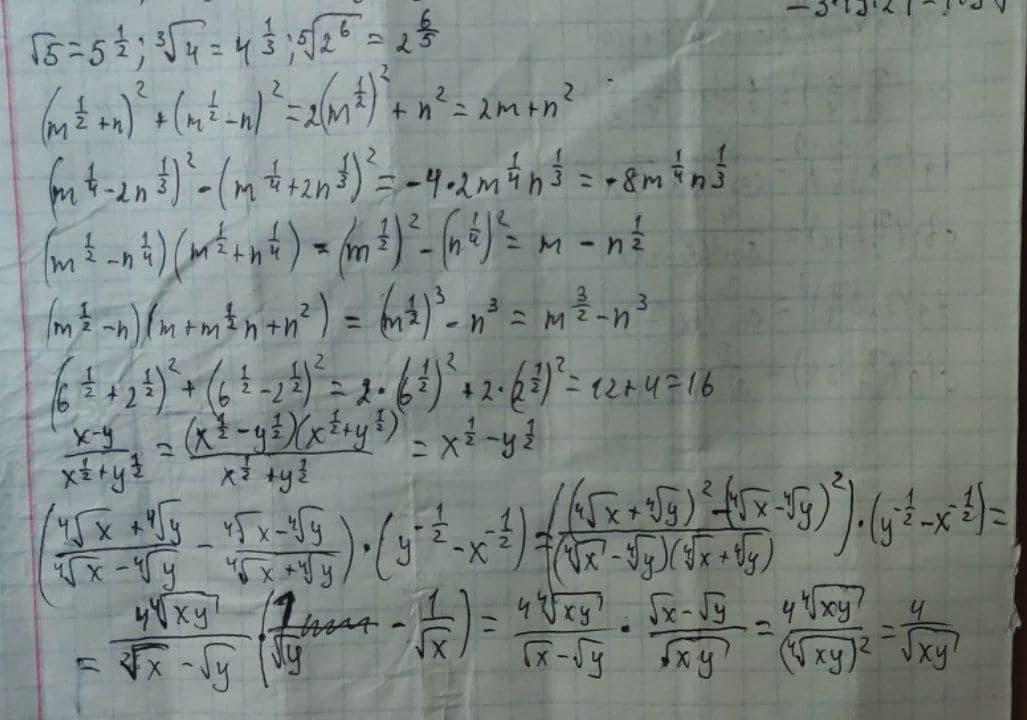 √5 = 5^{1/2}; ∛4 = 4^{1/3}; ⁵√(2⁶) = 2^{6/5}
(m^{1/2} + n)² + (m^{1/2} - n)² = 2(m^{1/2})² + n² = 2m + n²
(m^{1/4} - 2n^{1/3})² - (m^{1/4} + 2n^{1/3})² = -4·2m^{1/4}n^{1/3} = -8m^{1/4}n^{1/3}
(m^{1/2} - n^{1/4})(m^{1/2} + n^{1/4}) = (m^{1/2})² - (n^{1/4})² = m - n^{1/2}
(m^{1/2} - n)(m + m^{1/2}n + n²) = (m^{1/2})³ - n³ = m^{3/2} - n³
(6^{1/2} + 2^{1/2})² + (6^{1/2} - 2^{1/2})² = 2·(6^{1/2})² + 2·(2^{1/2})² = 12 + 4 = 16
(x-y)/(x^{1/2} + y^{1/2}) = (x^{1/2} - y^{1/2})(x^{1/2} + y^{1/2})/(x^{1/2} + y^{1/2}) = x^{1/2} - y^{1/2}
((⁴√x + ⁴√y)/(⁴√x - ⁴√y) - (⁴√x - ⁴√y)/(⁴√x + ⁴√y))·(y^{-1/2} - x^{-1/2}) = (((⁴√x + ⁴√y)² - (⁴√x - ⁴√y)²)/((⁴√x - ⁴√y)(⁴√x + ⁴√y)))·(y^{-1/2} - x^{-1/2}) =
= 4⁴√(xy)/(²√x - √y)·(1/√y - 1/√x) = 4⁴√(xy)/(√x - √y)·(√x - √y)/√(xy) = 4⁴√(xy)/(⁴√(xy))² = 4/√(xy)